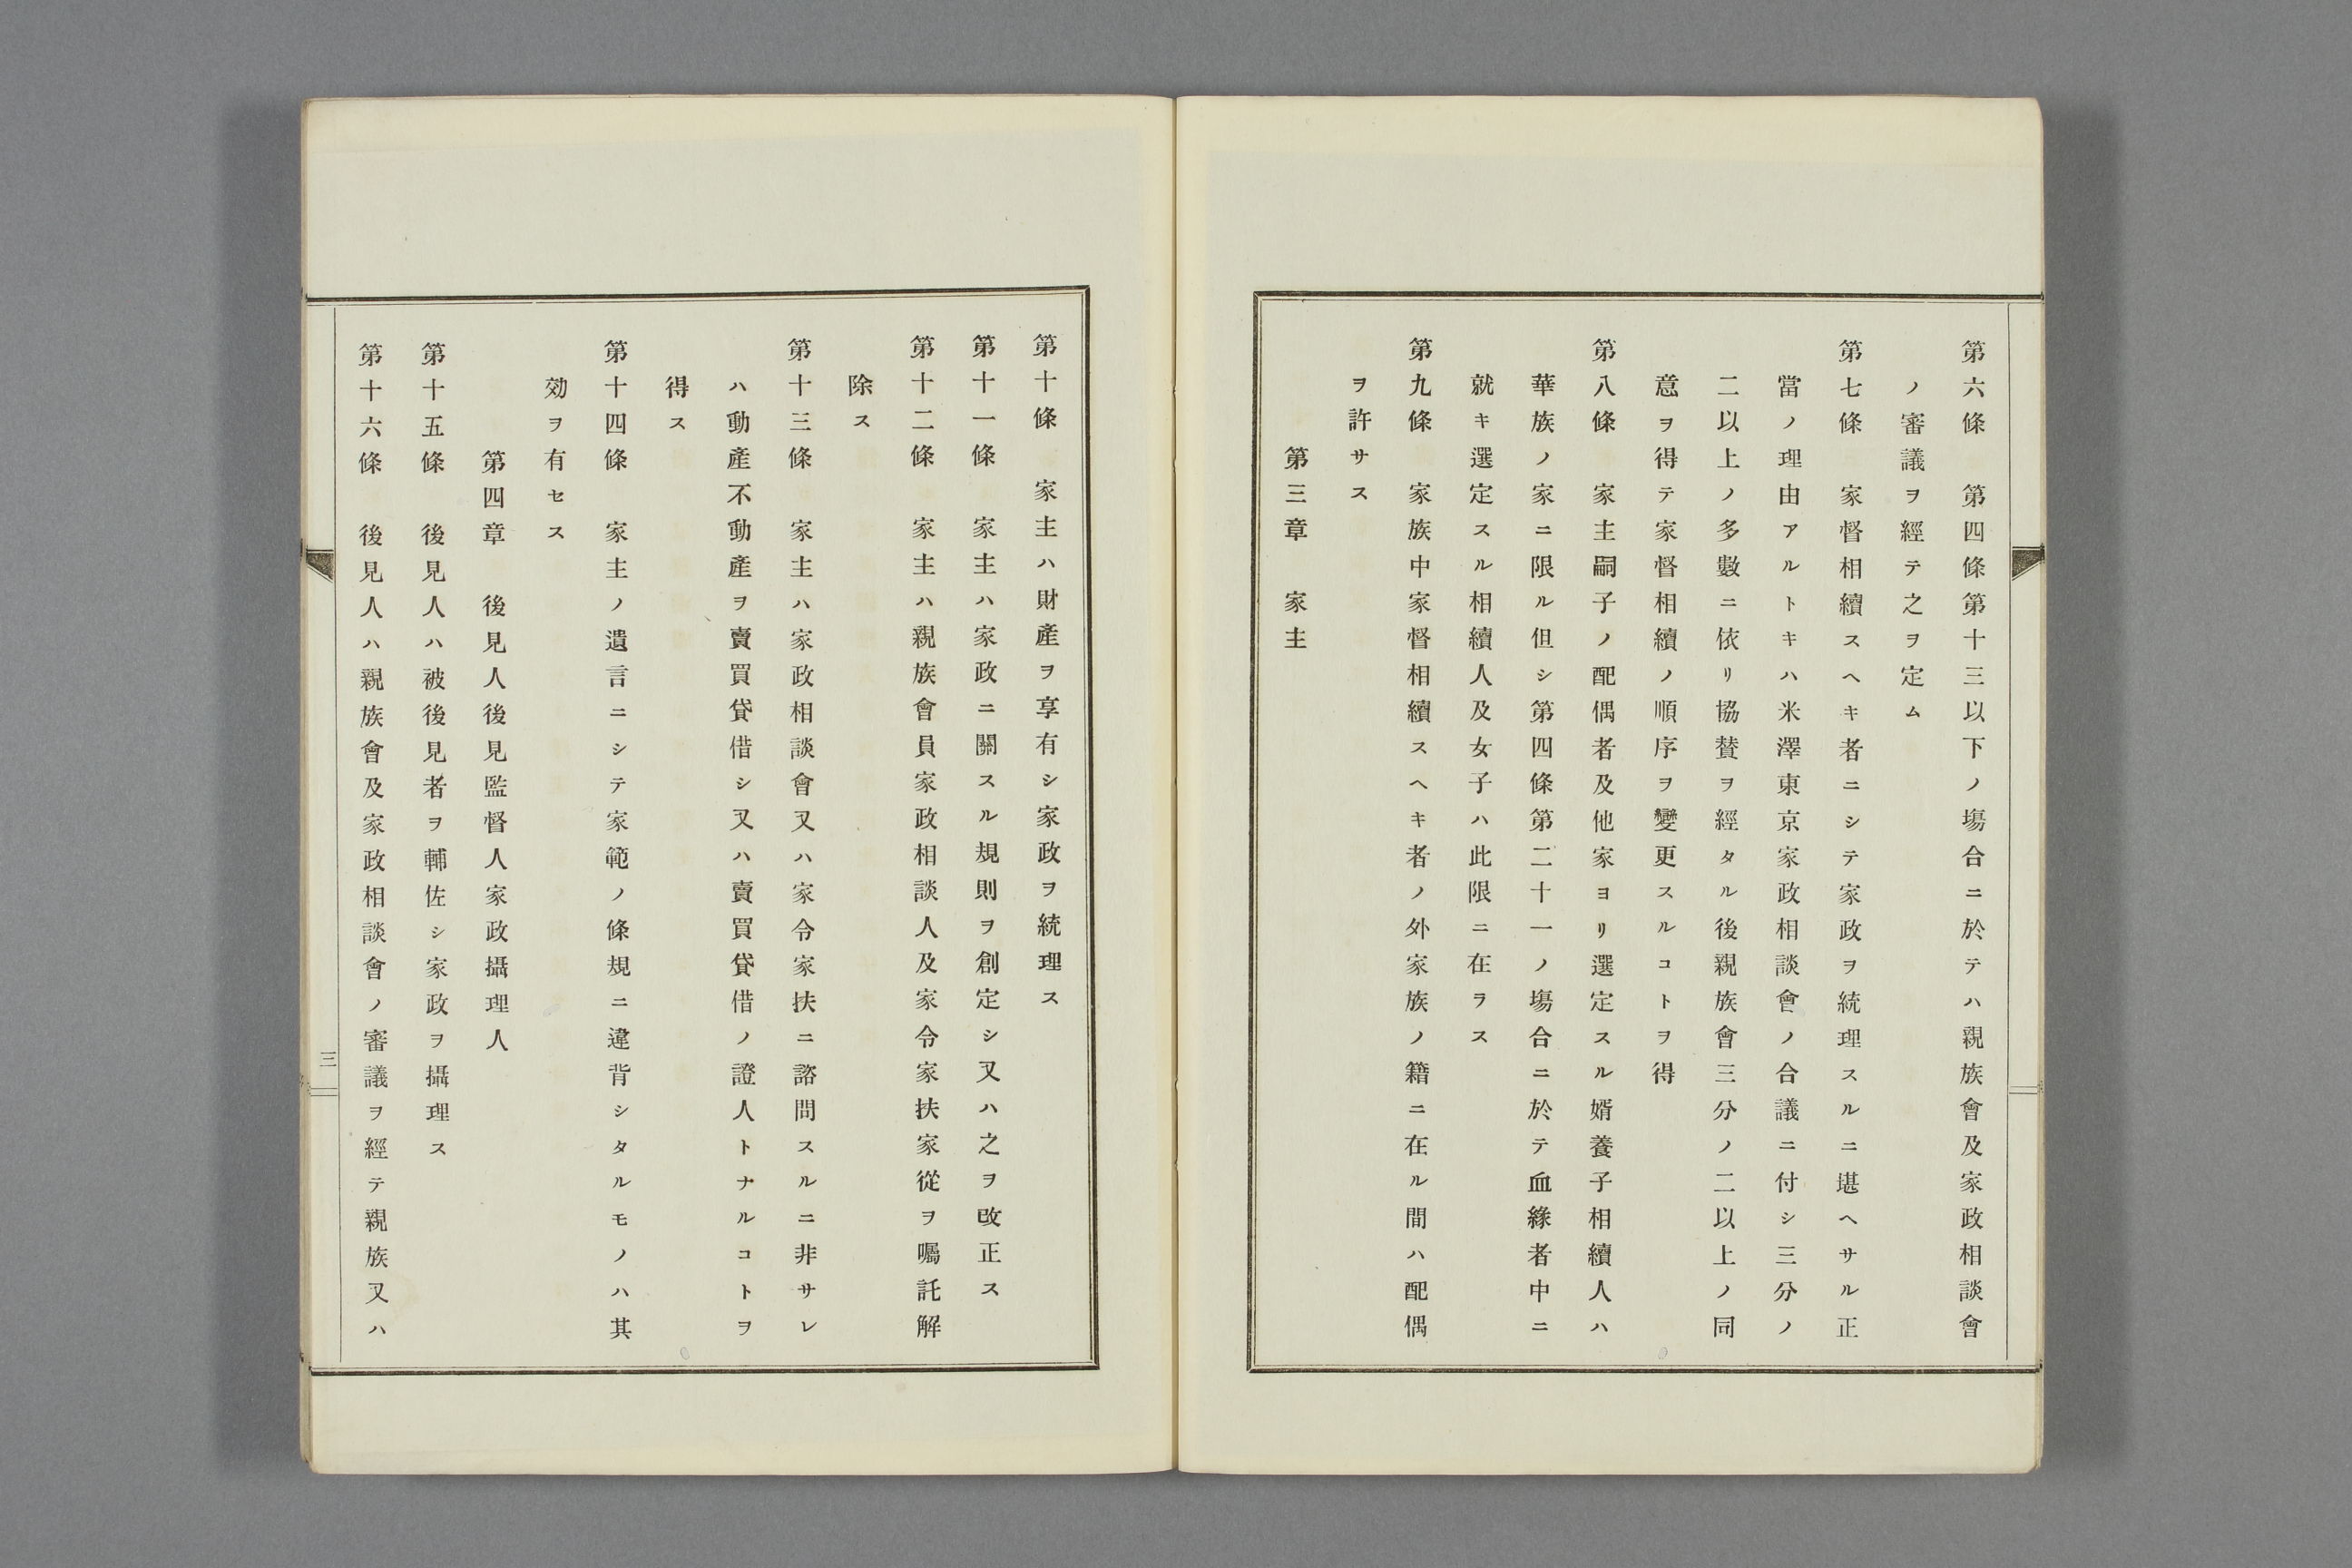 第六條　第四條第十三以下ノ塲合ニ於テハ親族會及家政相談會
ノ審議ヲ經テ之ヲ定ム
第七條　家督相續スヘキ者ニシテ家政ヲ統理スルニ堪ヘサル正
當ノ理由アルトキハ米澤東京家政相談會ノ合議ニ付シ三分ノ
二以上ノ多數ニ依リ協賛ヲ經タル後親族會三分ノ二以上ノ同
意ヲ得テ家督相續ノ順序ヲ變更スルコトヲ得
第八條　家主嗣子ノ配偶者及他家ヨリ選定スル婿養子相續人ハ
華族ノ家ニ限ル但シ第四條第二十一ノ塲合ニ於テ血緣者中ニ
就キ選定スル相續人及女子ハ此限ニ在ラス
第九條　家族中家督相續スヘキ者ノ外家族ノ籍ニ在ル間ハ配偶
ヲ許サス
第三章　家主
第十條　家主ハ財產ヲ享有シ家政ヲ統理ス
第十一條　家主ハ家政ニ關スル規則ヲ創定シ又ハ之ヲ改正ス
第十二條　家主ハ親族會員家政相談人及家令家扶家從ヲ囑託解
除ス
第十三條　家主ハ家政相談會又ハ家令家扶ニ諮問スルニ非サレ
ハ動產不動產ヲ賣買貸借シ又ハ賣買貸借ノ證人トナルコトヲ
得ス
第十四條　家主ノ遺言ニシテ家範ノ條規ニ違背シタルモノハ其
効ヲ有セス
第四章　後見人後見監督人家政攝理人
第十五條　後見人ハ被後見者ヲ輔佐シ家政ヲ攝理ス
第十六條　後見人ハ親族會及家政相談會ノ審議ヲ經テ親族又ハ
三